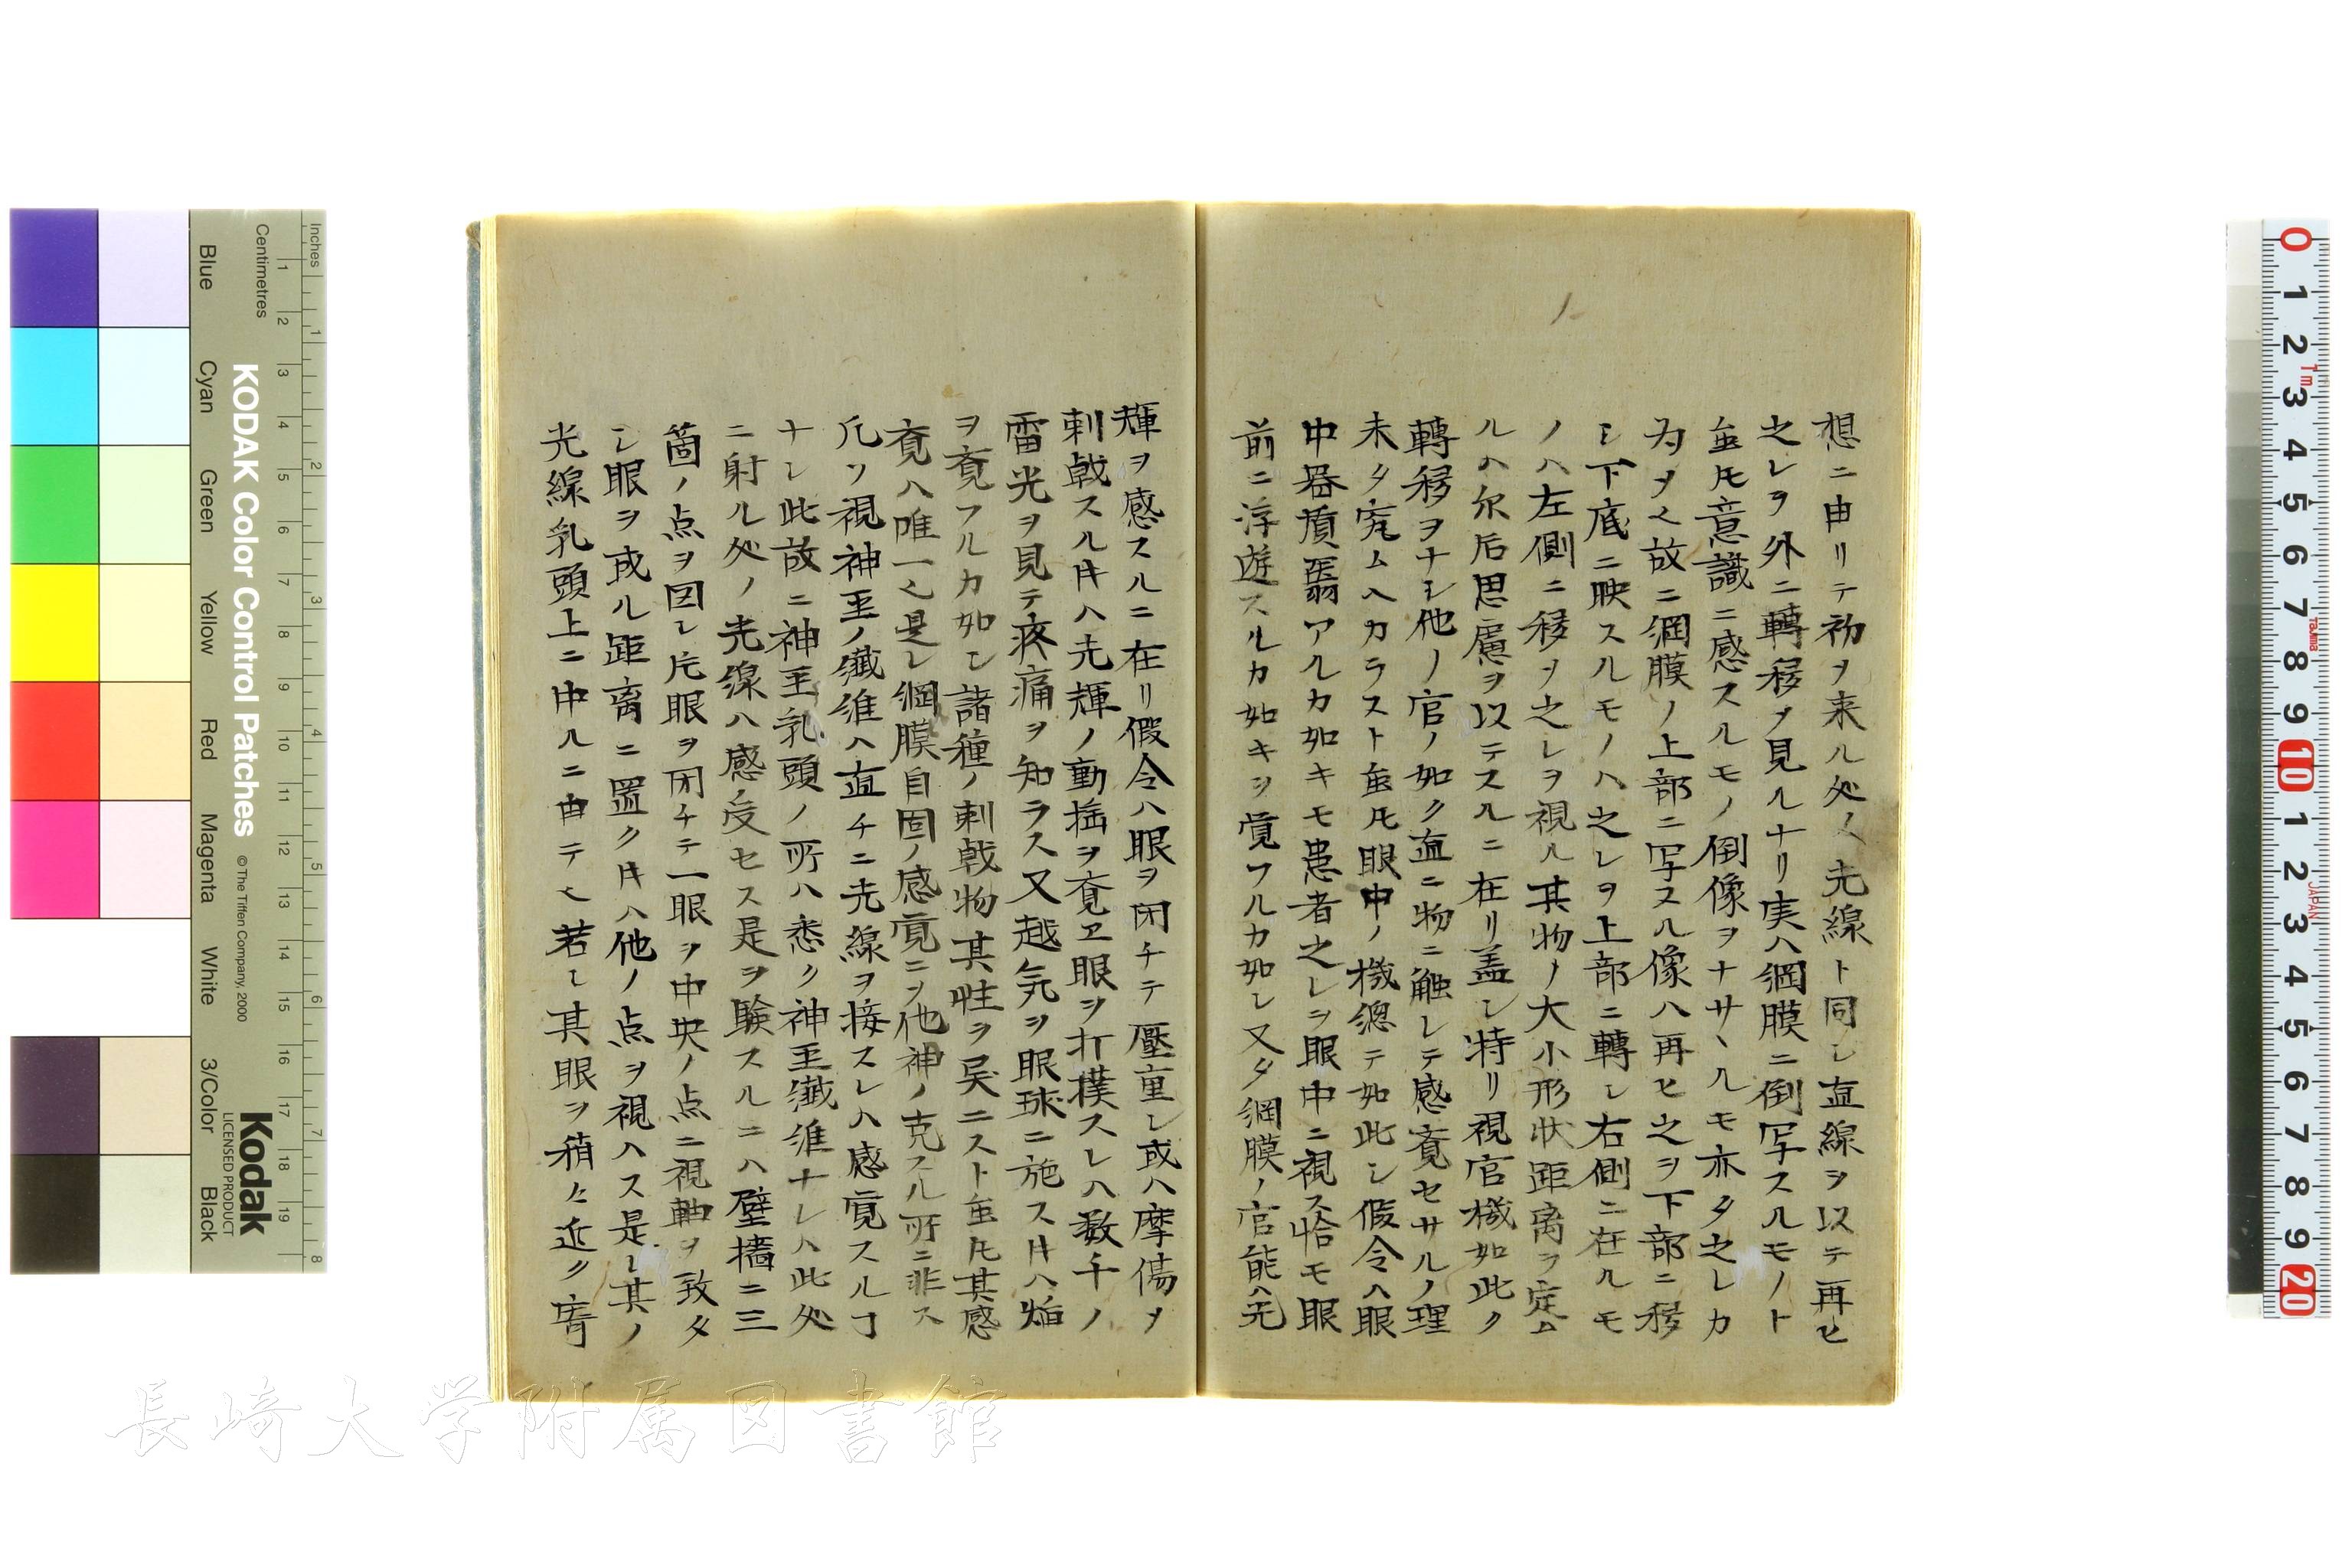 想ニ由リテ初ヲ来ル処ノ光線ト同シ直線ヲ以テ再ヒ
之レヲ外ニ轉移メ見ルナリ実ハ網膜ニ倒写スルモノト
虽𪜈意識ニ感スルモノ倒像ヲナサヽルモ亦タ之レカ
為メ也故ニ網膜ノ上部ニ写スル像ハ再ヒ之ヲ下部ニ移
シ下底ニ映スルモノハ之レヲ上部ニ轉シ右側ニ在ルモ
ノハ左側ニ移ヲ之レヲ視ル其物ノ大小形状距离ヲ定ム
ルハ尔后思慮ヲ以テスルニ在リ盖シ特リ視官機如此ク
轉移ヲナシ他ノ官ノ如ク直ニ物ニ触レテ感覚セサルノ理
未タ究ムヘカラスト虽𪜈眼中ノ機總テ如此シ假令ハ眼
中器質翳アルカ如キモ患者之レヲ眼中ニ視ス恰モ眼
前ニ浮遊スルカ如キヲ覚フルカ如シ又タ網膜ノ官能ハ光
輝ヲ感スルニ在リ假令ハ眼ヲ閉チテ壓重シ或ハ摩傷ヲ
刺戟スル𪜈ハ光輝ノ動揺ヲ覚ヱ眼ヲ打撲スレハ数千ノ
雷光ヲ見テ疼痛ヲ知ラス又越気ヲ眼球ニ施ス𪜈ハ焔
ヲ覚フルカ如シ諸種ノ刺戟物其性ヲ異ニスト虽𪜈其感
覚ハ唯一也是レ網膜自固ノ感覚ニヲ他神ノ克スル所ニ非ス
凡ソ視神圣ノ纎維ハ直チニ光線ヲ接スレハ感覚スルヿ
ナシ此故ニ神圣乳頭ノ所ハ悉ク神圣纎維ナレハ此処
ニ射ル処ノ光線ハ感受セス是ヲ験スルニハ壁墻ニ三
箇ノ点ヲ図シ片眼ヲ閉チテ一眼ヲ中央ノ点ニ視軸ヲ致タ
シ眼ヲ或ル距离ニ置ク𪜈ハ他ノ点ヲ視ハス是レ其ノ
光線乳頭上ニ中ルニ由テ也若シ其眼ヲ稍々近ク寄
KODAK Color Control Patches
© The Tiffen Company, 2000
Kodak
LICENSED PRODUCT
Inches
Centimetres
Blue Cyan Green Yellow Red Magenta White 3/Color Black
長崎大学附属図書館